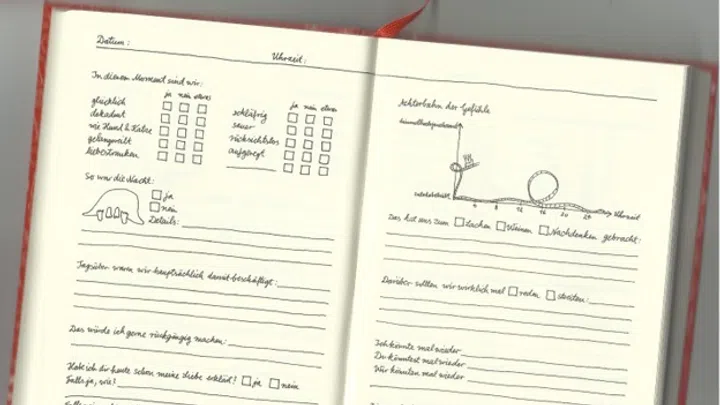 Datum:
Uhrzeit:
In diesem Moment sind wir:
ja nein etwas
glücklich
dekadent
wie Hund & Katze
gelangweilt
liebestrunken
ja nein etwas
schläfrig
sauer
rücksichtslos
aufgeregt
So war die Nacht:
ja
nein
Details:
Tagsüber waren wir hauptsächlich damit beschäftigt:
Das würde ich gerne rückgängig machen:
Hab ich dir heute schon meine Liebe erklärt? ja nein
Falls ja, wie?
Achterbahn der Gefühle
himmelhochjauchzend
zu Tode betrübt
4 8 12 16 20 24 Uhrzeit
Das hat uns zum Lachen Weinen Nachdenken gebracht:
Darüber sollten wir wirklich mal reden streiten:
Ich könnte mal wieder
Du könntest mal wieder
Wir könnten mal wieder